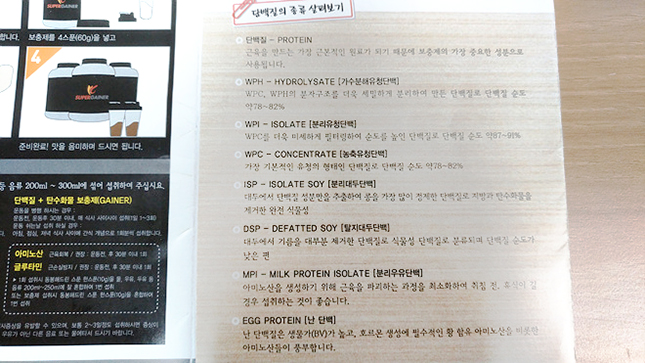 보충제를 4스푼(60g)을 넣고
4
SUPERGAINER
준비완료! 맛을 음미하며 드시면 됩니다.
등 음류 200ml ~ 300ml에 섞어 섭취하여 주십시요.
단백질 + 탄수화물 보충제(GAINER)
운동을 병행 하시는 경우 :
운동 쉬는날 섭취 하실 경우 :
아미노산
글루타민
단백질의 종류 살펴보기
단백질 – PROTEIN
근육을 만드는 가장 근본적인 원료가 되기 때문에 보충제의 가장 중요한 성분으로
사용됩니다.
WPH – HYDROLYSATE [가수분해유청단백]
WPC, WPH의 분자구조를 더욱 세밀하게 분리하여 만든 단백질로 단백질 순도
약78~82%
WPI – ISOLATE [분리유청단백]
WPC를 더욱 미세하게 필터링하여 순도를 높인 단백질로 단백질 순도 약87~91%
WPC – CONCENTRATE [농축유청단백]
가장 기본적인 유청의 형태인 단백질로 단백질 순도 약78~82%
ISP – ISOLATE SOY [분리대두단백]
대두에서 단백질 성분만을 추출하여 콩을 가장 많이 정제한 단백질로 지방과 탄수화물을
제거한 완전 식물성
DSP – DEFATTED SOY [탈지대두단백]
대두에서 기름을 대부분 제거한 단백질로 식물성 단백질로 분류되며 단백질 순도가
낮은 편
MPI – MILK PROTEIN ISOLATE [분리우유단백]
아미노산을 생성하기 위해 근육을 파괴하는 과정을 최소화하여 취침 전, 휴식이 길
경우 섭취하는 것이 좋습니다.
EGG PROTEIN [난 단백]
난 단백질은 생물가(BV)가 높고, 호르몬 생성에 필수적인 황 함유 아미노산을 비롯한
아미노산들이 풍부합니다.